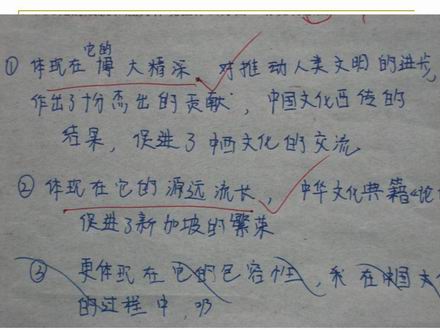 它的
①体现在博大精深。对推动人类文明的进步,
作出了十分杰出的贡献,中国文化西传的
结果,促进了中西文化的交流
②体现在它的源远流长,中华文化典籍《论
促进了新加坡的繁荣
③更体现在它的包容性,我在中国文
的过程中,